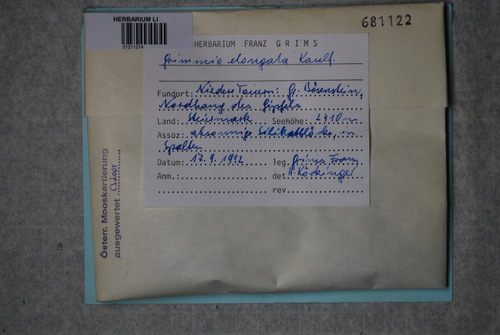 HERBARIUM LI
681122
HERBARIUM FRANZ GRIMS
Grimmia elongata Kaulf.
Fundort: Niedere Tauern: Gr. Bösenstein,
Nordhang des Gipfels
Land: Steiermark Seehöhe: 2410m
Assoz: absonnige Silikatblöcke, in
Spalten
Datum: 17.9.1992 leg. Grims Franz
Anm.: det. H. Köckinger
rev.
Österr. Mooskartierung
ausgewertet